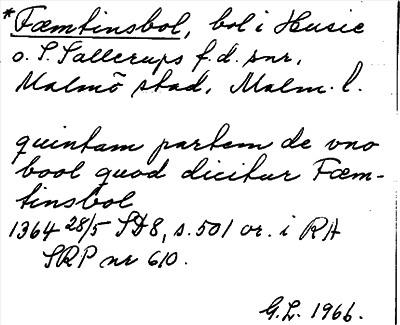 *Fæmtinsbol, bol i Husie
o. S. Sallerups f.d. snr,
Malmö stad, Malm. l.
quintam partem de vno
bool quod dicitur Fæm-
tinsbol
1364 28/5 SD8, s. 501 or. i RA
SRP nr 610.
G.L. 1966.